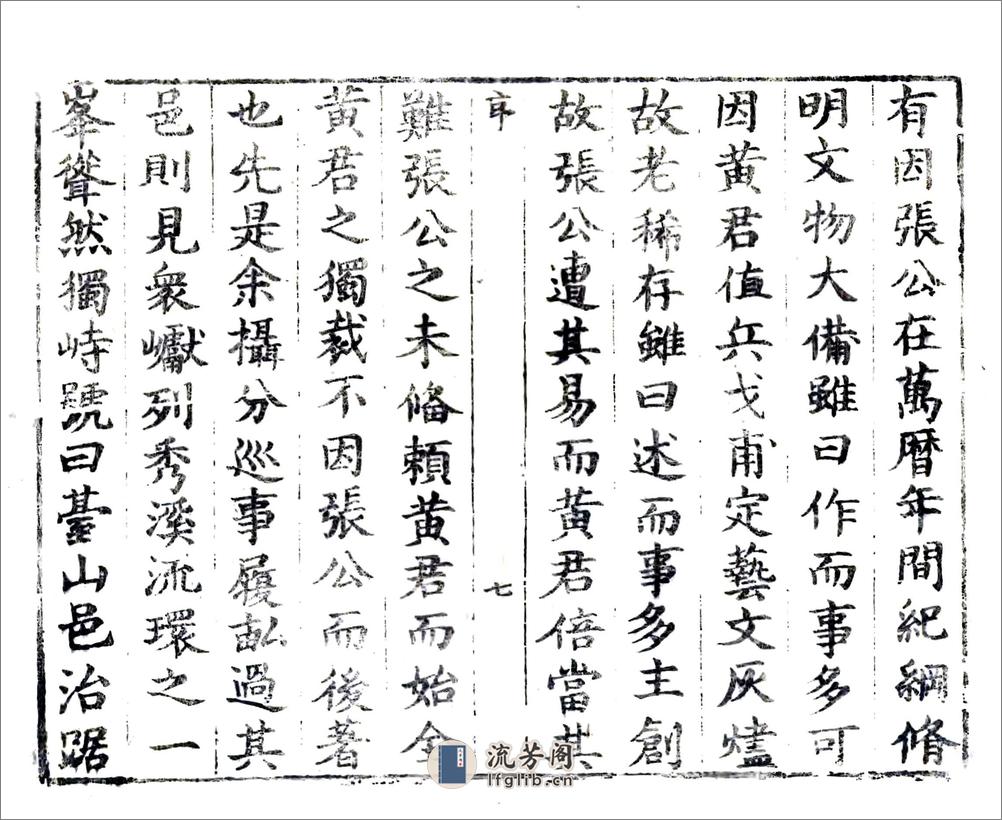 有因張公在萬曆年間紀綱脩
明文物大備雖曰作而事多可
因黄君值兵戈甫定藝文灰燼
故老稀存雖曰述而事多主創
故張公遭其易而黄君倍當其
序 七
難張公之未備頼黄君而始全
黄君之獨裁不因張公而後著
也先是余攝分巡事履畝過其
邑則見衆巘列秀溪流環之一
峯聳然獨峙號曰臺山邑治踞
流芳阁
lfglib.cn